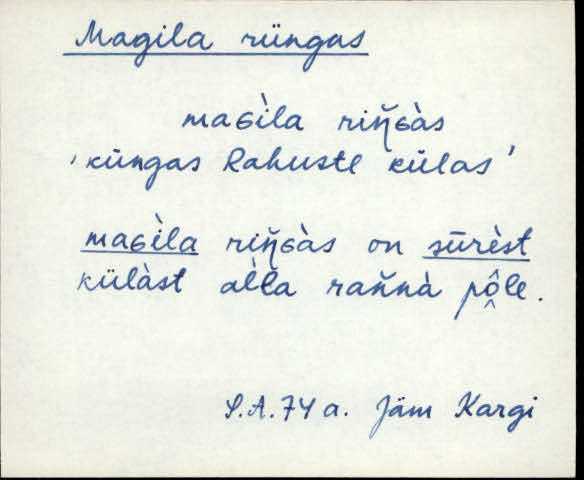 Magila rüngas
maɢìla riŋ̆ɢàs
'küngas Rahuste külas'
maɢìla riŋ̆ɢàs on sūrèst
külàst àlla rañ̆nà pô̭le.
S.A.74 a. Jäm Kargi